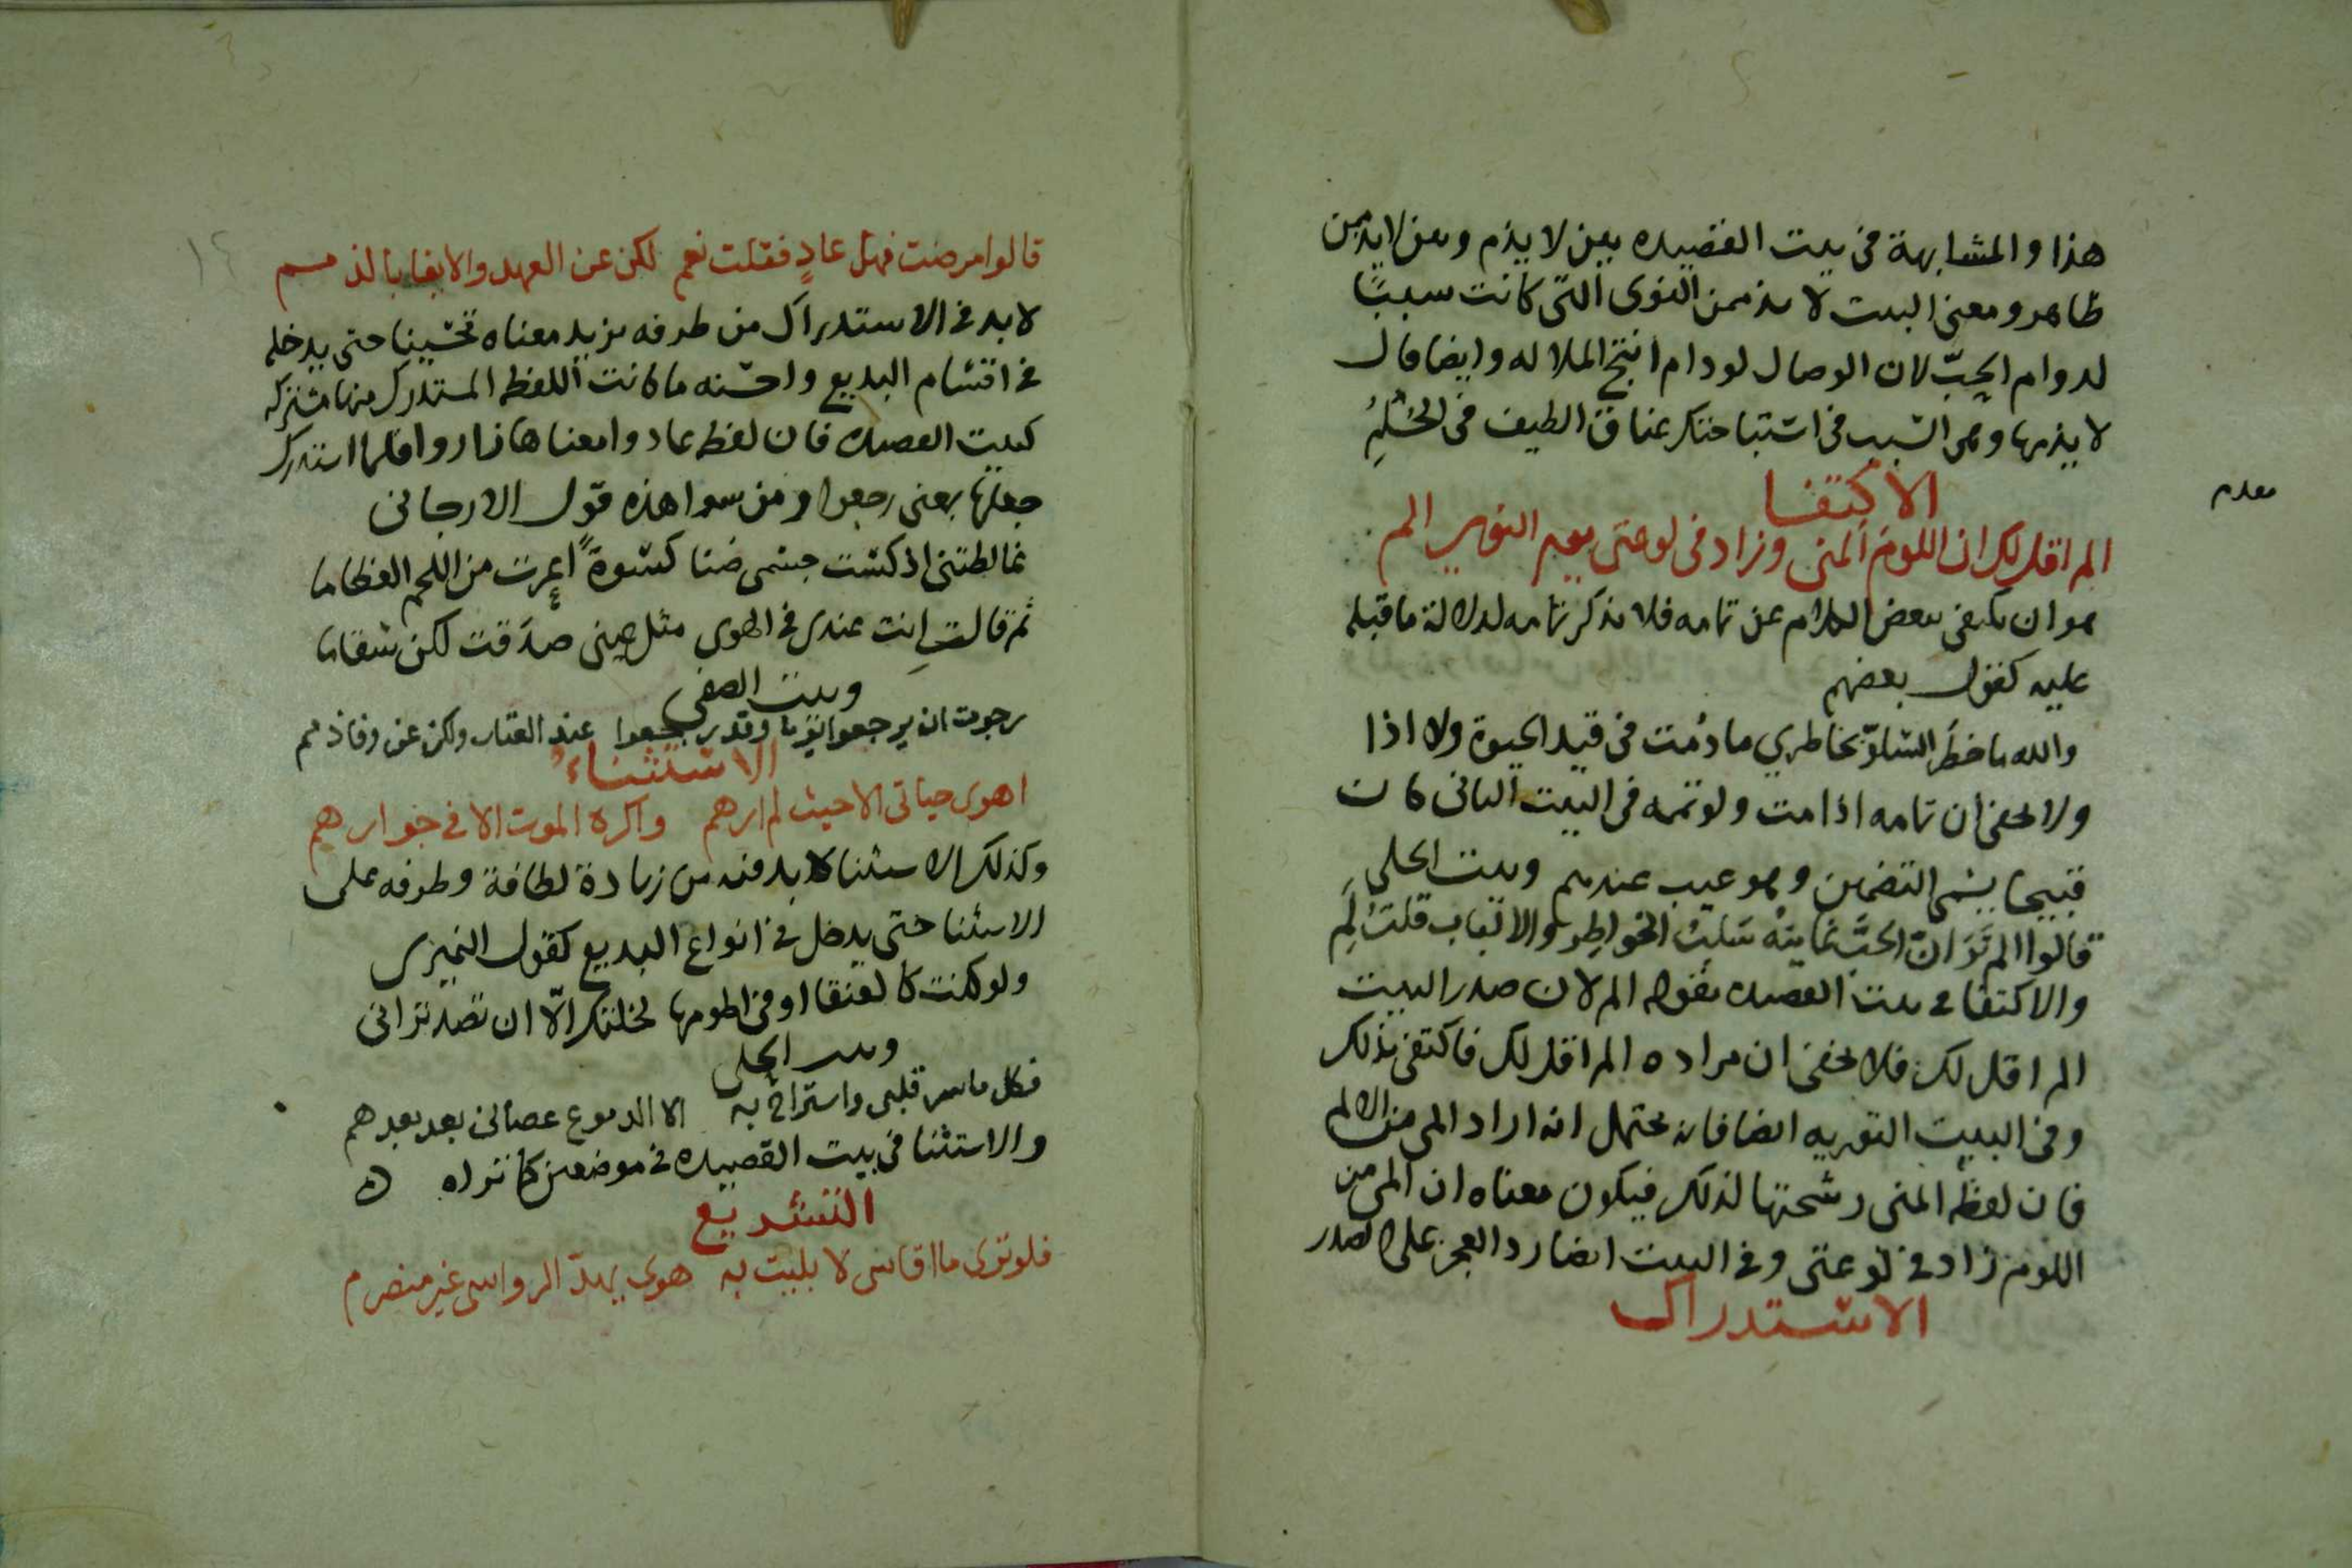 هذا والمشابهة في بيت القصيده بين لا يذم وبين لا يذممن
ظاهر ومعنى البيت لا يذممن النوى التي كانت سببًا
لدوام الحبّ لان الوصال لو دام انتج الملاله وايضا قال
لا يذمها وهي السبب في استباحتك عناق الطيف في الحُلُمِ
الاكتفا
معدم
الم اقل لك ان اللوم المنى وزاد في لوعتي يوم النوى الم
هو ان يكتفى ببعض الكلام عن تمامه فلا يذكر تمامه لدلالة ما قبله
عليه كقول بعضهم
والله ما خطَر السلوّ بخاطري ما دُمت في قيد الحيوة ولا اذا
ولا يخفى ان تمامه اذا مت ولو تممه في البيت الثاني كان
قبيحا يسمى التضمين وهو عيب عندهم وبيت الحلي
قالوا الم تَرَ انّ الحبَّ غايته سَلبُ الخواطِر والالباب قلت لَمِ
والاكتفا في بيت القصيده بقوله الم لان صدر البيت
الم اقل لك فلا يخفى ان مراده الم اقل لك فاكتفى بذلك
وفي البيت التوريه ايضا فانه يحتمل انه اراد الم من الالم
فان لفظه المنى رشحتها لذلك فيكون معناه ان الم من
اللوم زاد في لوعتي وفي البيت ايضا رد العجز على الصدر
الاستدراك
١٤
قالوا مرضت فهل عادٍ فقلت نعم لكن عن العهد والايفا بالذمم
لا بد في الاستدراك من طرفه يزيد معناه تحسينا حتى يدخله
في اقسام البديع واحسنه ما كانت اللفظه المستدرك منها مشتركه
كبيت القصيده فان لفظه عادوا معناها زاروا فلما استدرك
جعلتها بمعنى رجعوا ومن سوا هذه قول الارجاني
غالطتني اذ كست جسمى ضنا كسوةً اعرت من اللحم العظاما
ثم قالت انت عندى في الهوى مثل عينى صدَقت لكن سقاما
وبيت الصفي
رجوت ان يرجعوا يوما وقد رجعوا عند العتاب ولكن عن وفا ذمم
الاستثناء
اهوى حياتي الا حيث لم ارهم واكره الموت الا في جوارهم
وكذلك الاستثنا لا بد فيه من زيادة لطافة وطرفه على
الاستثنا حتى يدخل في انواع البديع كقول النميرى
ولو كنت كالعنقا او في اطومها لخلتك الّا ان تصد تراني
وبيت الحلي
فكل ما سر قلبي واستراح به الا الدموع عصاني بعد بعدهم
والاستثنا في بيت القصيده في موضعين كما تراه ه
التشريع
فلو ترى ما اقاسى لا بليت به هوى يهدّ الرواسى غير منصرم